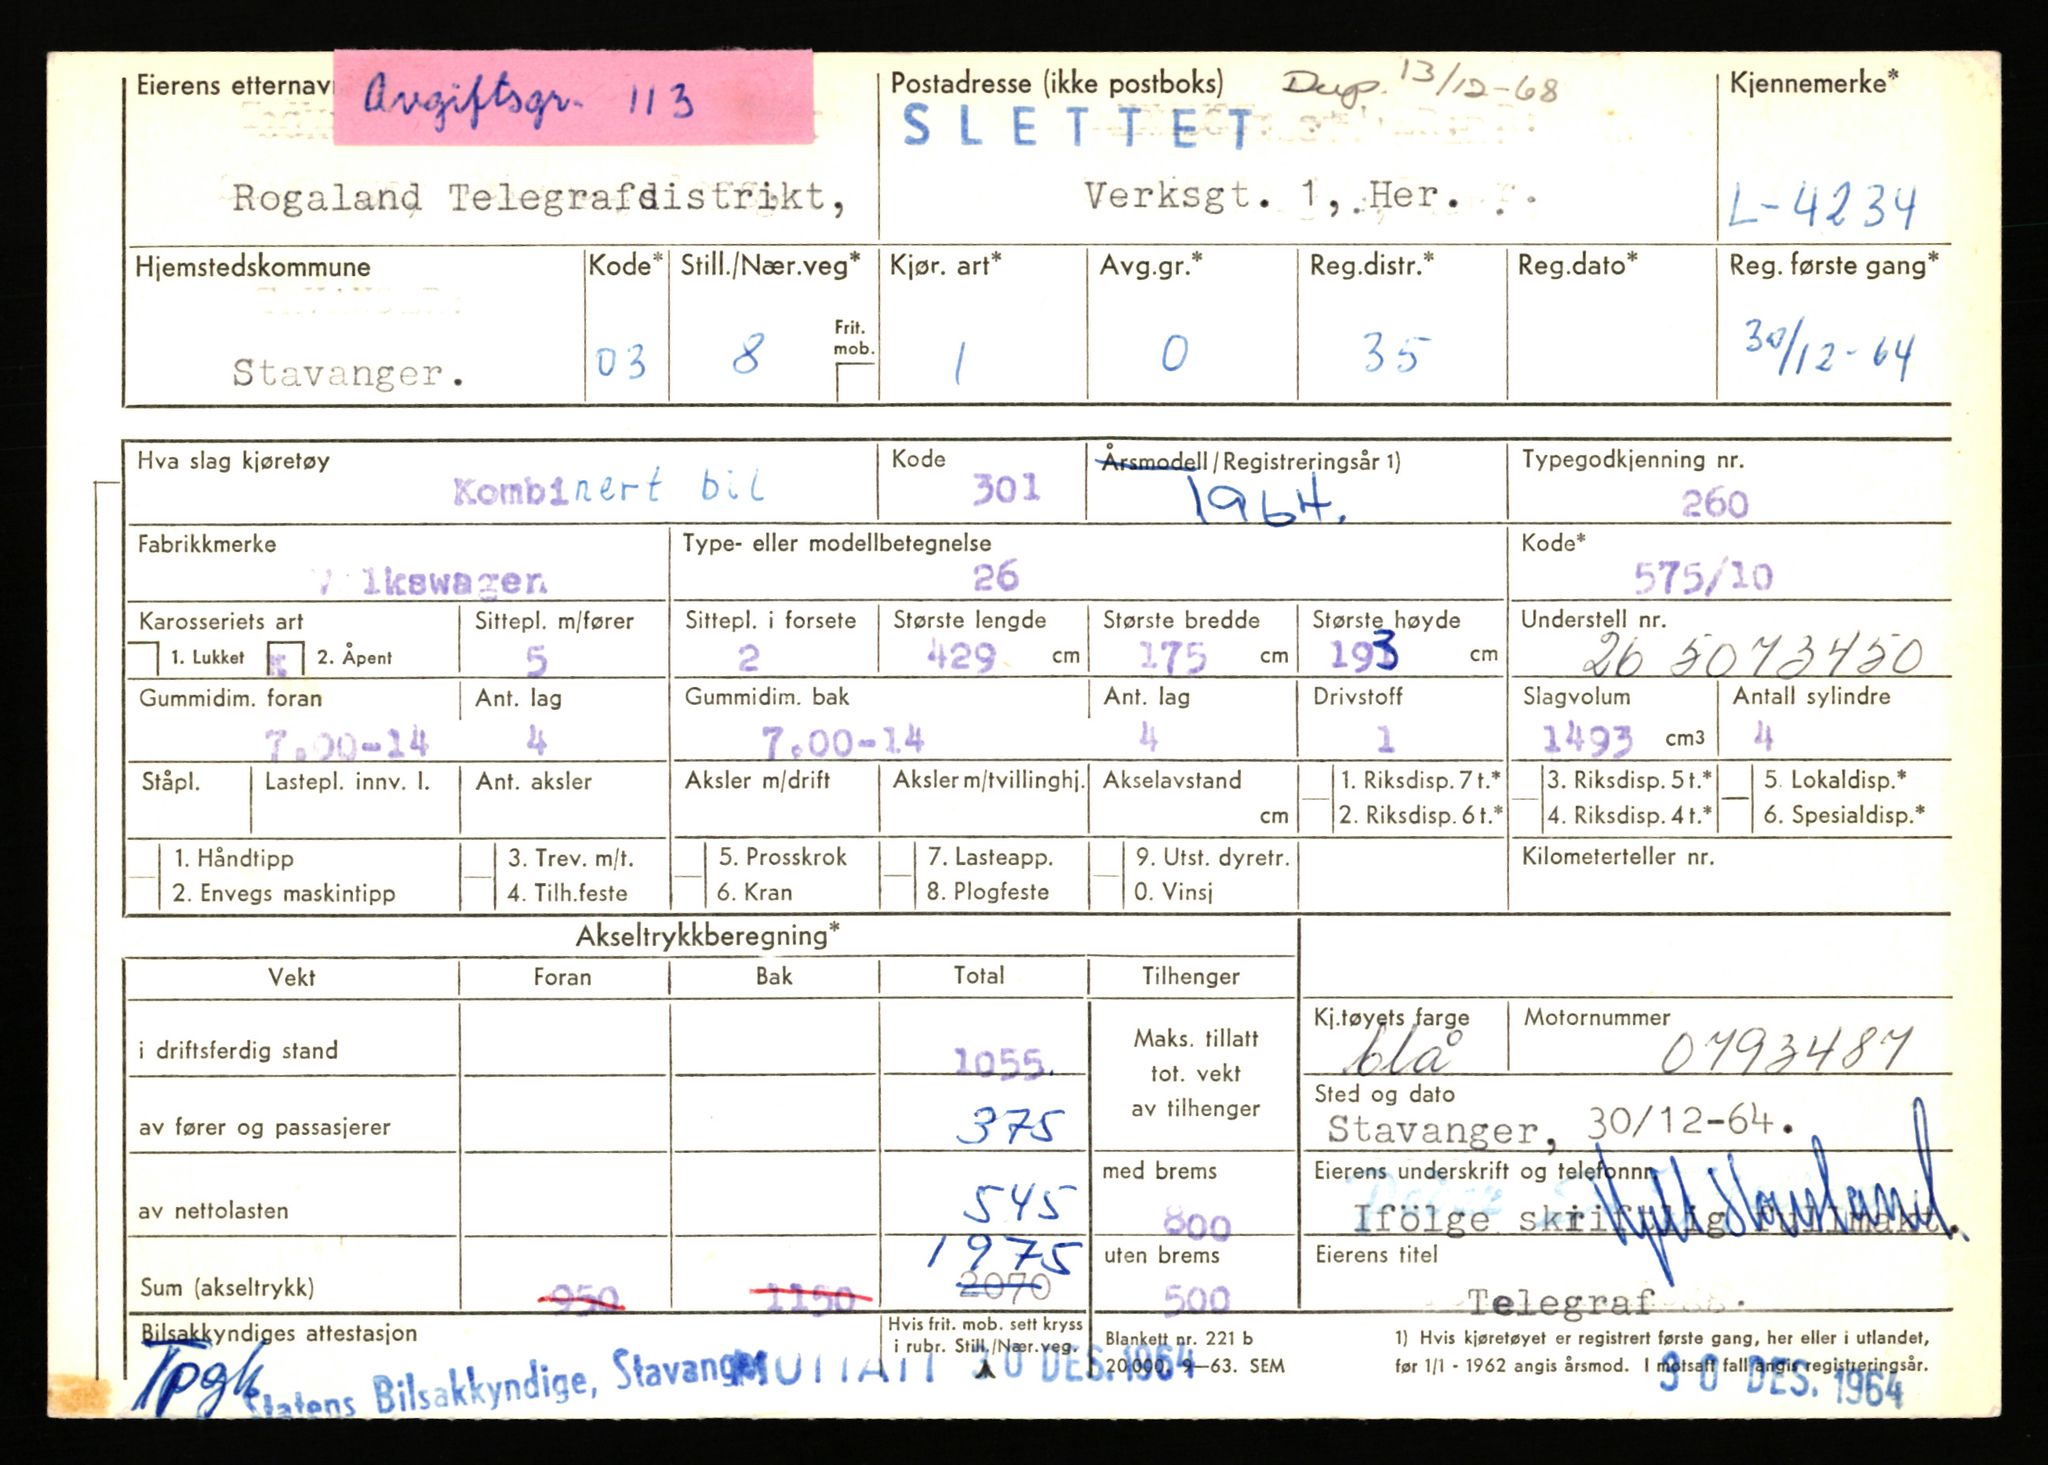 Eierens etternavn
Avgiftsgr. 113
Rogaland Telegrafdistrikt,
Postadresse (ikke postboks) Dup. 13/12-68
SLETTET
Verksgt. 1, Her.
Kjennemerke*
L-4234
Hjemstedskommune
Stavanger.
Kode*
03
Still./Nær.veg*
8
Frit. mob.
Kjør. art*
1
Avg.gr.*
0
Reg.distr.*
35
Reg.dato*
Reg. første gang*
30/12-64
Hva slag kjøretøy
Kombinert bil
Kode
301
Årsmodell/Registreringsår 1)
1964.
Typegodkjenning nr.
260
Fabrikkmerke
Volkswagen
Type- eller modellbetegnelse
26
Kode*
575/10
Karosseriets art
1. Lukket x 2. Åpent
Sittepl. m/fører
5
Sittepl. i forsete
2
Største lengde
429 cm
Største bredde
175 cm
Største høyde
193 cm
Understell nr.
26 5073450
Gummidim. foran
7.00-14
Ant. lag
4
Gummidim. bak
7.00-14
Ant. lag
4
Drivstoff
1
Slagvolum
1493 cm3
Antall sylindre
4
Ståpl.
Lastepl. innv. l.
Ant. aksler
Aksler m/drift
Aksler m/tvillinghj.
Akselavstand
cm
1. Riksdisp. 7 t.*
2. Riksdisp. 6 t.*
3. Riksdisp. 5 t.*
4. Riksdisp. 4 t.*
5. Lokaldisp.*
6. Spesialdisp.*
1. Håndtipp
2. Envegs maskintipp
3. Trev. m/t.
4. Tilh.feste
5. Prosskrok
6. Kran
7. Lasteapp.
8. Plogfeste
9. Utst. dyretr.
0. Vinsj
Kilometerteller nr.
Akseltrykkberegning*
Vekt Foran Bak Total Tilhenger
i driftsferdig stand 1055.
Maks. tillatt
tot. vekt
av tilhenger
av fører og passasjerer 375
av nettolasten 545
med brems
800
1975
Sum (akseltrykk) 950 1150 2070
uten brems
500
Kj.tøyets farge
blå
Motornummer
0793487
Sted og dato
Stavanger, 30/12-64.
Eierens underskrift og telefonnr.
Ifölge skriftlig fullmakt.
Eierens titel
Telegraf
Bilsakkyndiges attestasjon
Hvis frit. mob. sett kryss
i rubr. Still./Nær.veg.
Blankett nr. 221 b
20.000. 9-63. SEM
1) Hvis kjøretøyet er registrert første gang, her eller i utlandet,
før 1/1 - 1962 angis årsmod. I motsatt fall angis registreringsår.
Statens Bilsakkyndige, Stavanger
MOTTATT 30 DES. 1964
30 DES. 1964